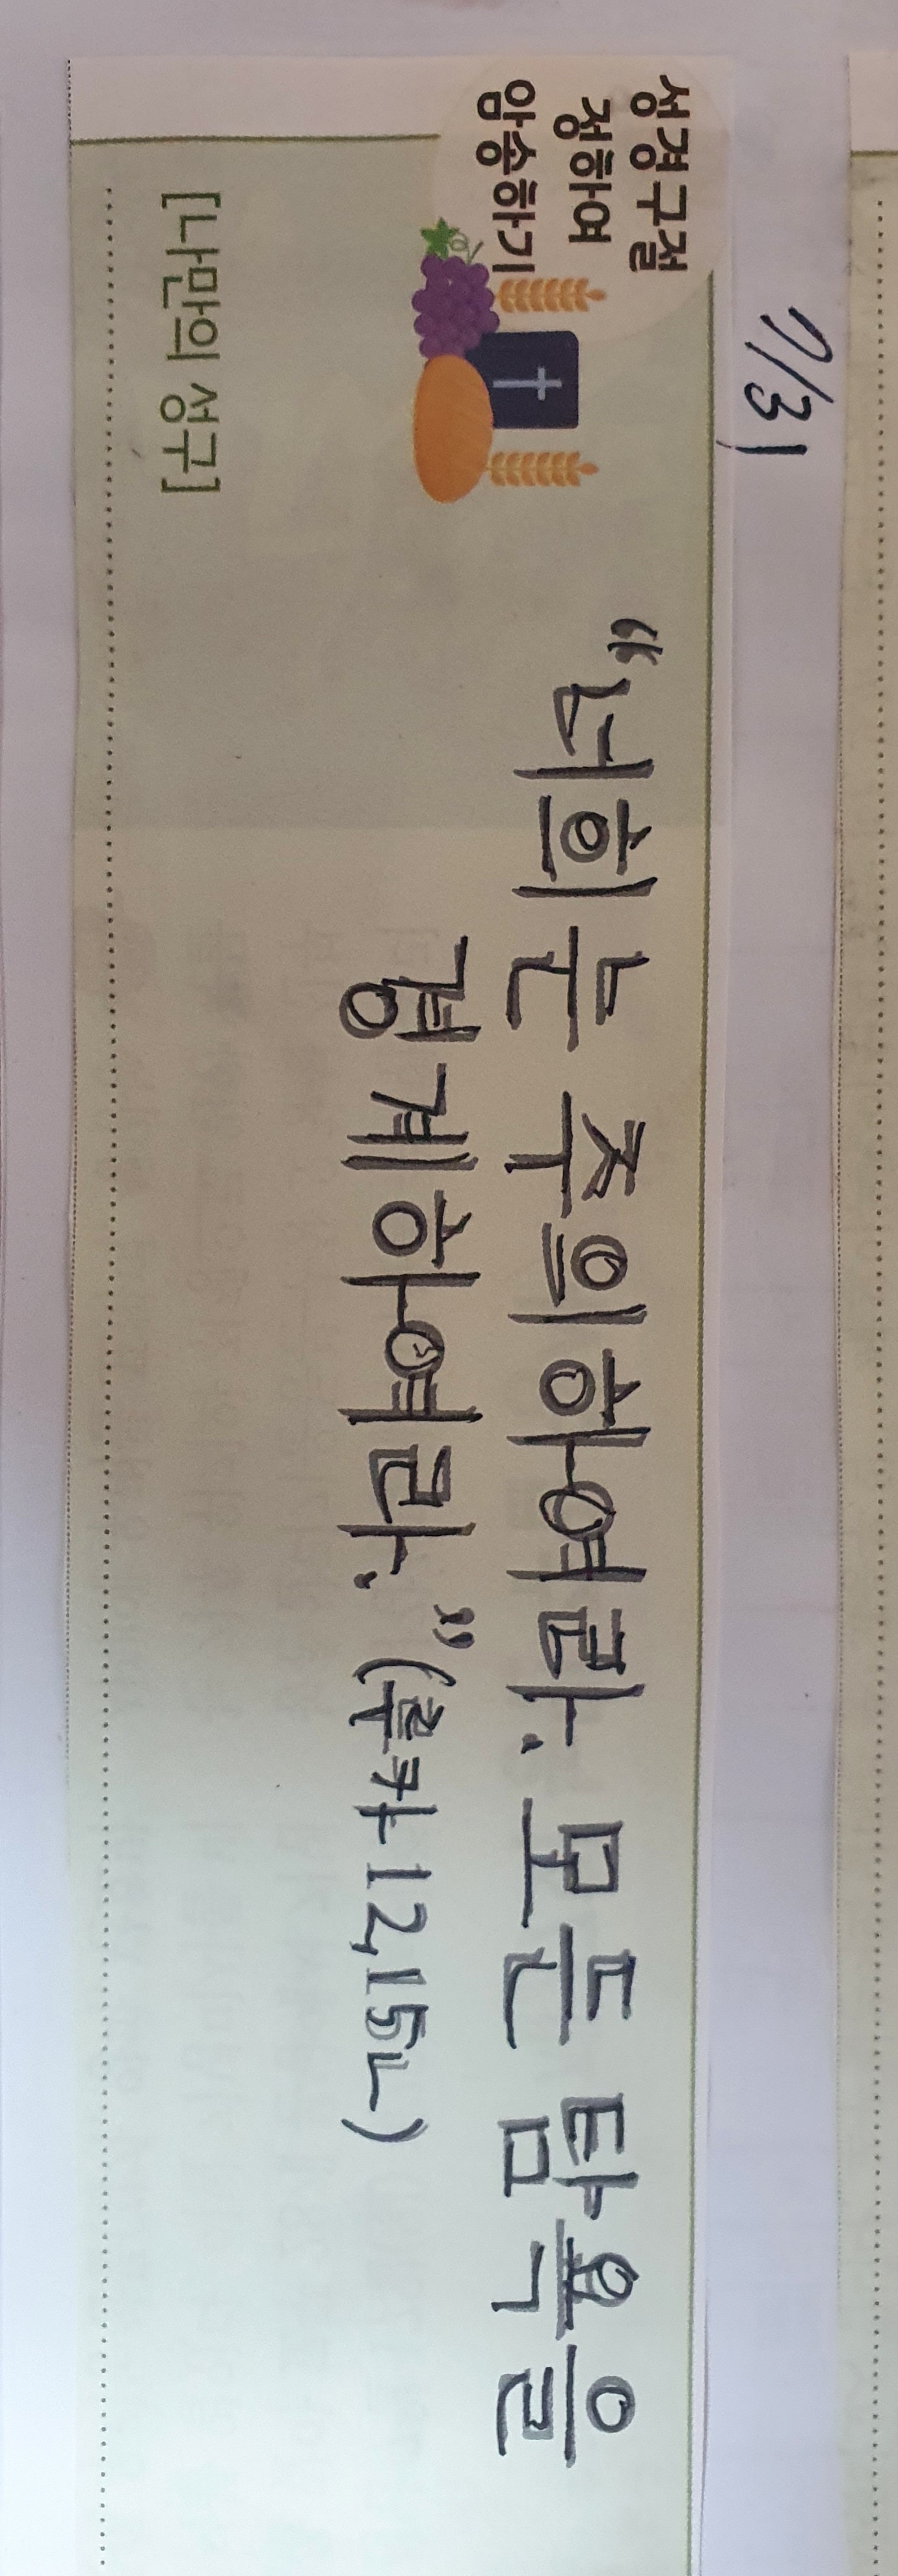 7/31
성경구절
정하여
암송하기
“너희는 주의하여라. 모든 탐욕을
경계하여라.”(루카 12,15ㄴ)
[나만의 성구]